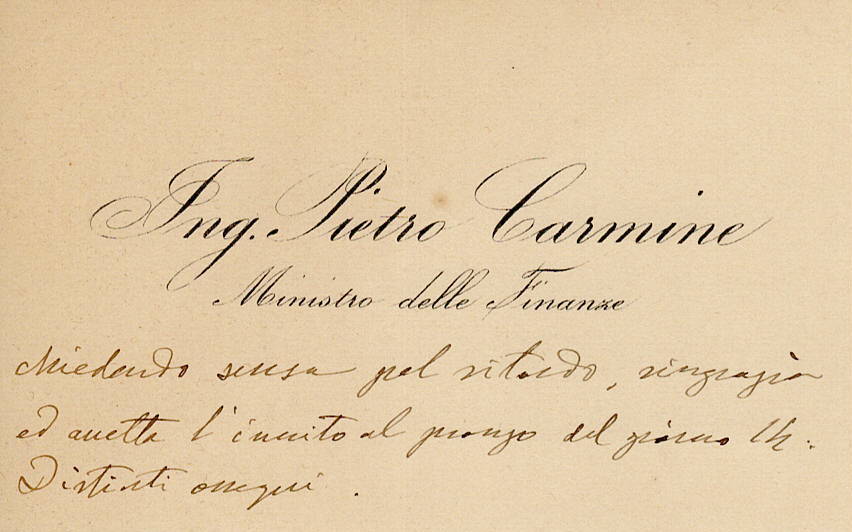 Ing. Pietro Carmine
Ministro delle Finanze
chiedendo scusa pel ritardo, ringrazia
ed accetta l'invito al pranzo del giorno 14.
Distinti ossequi.